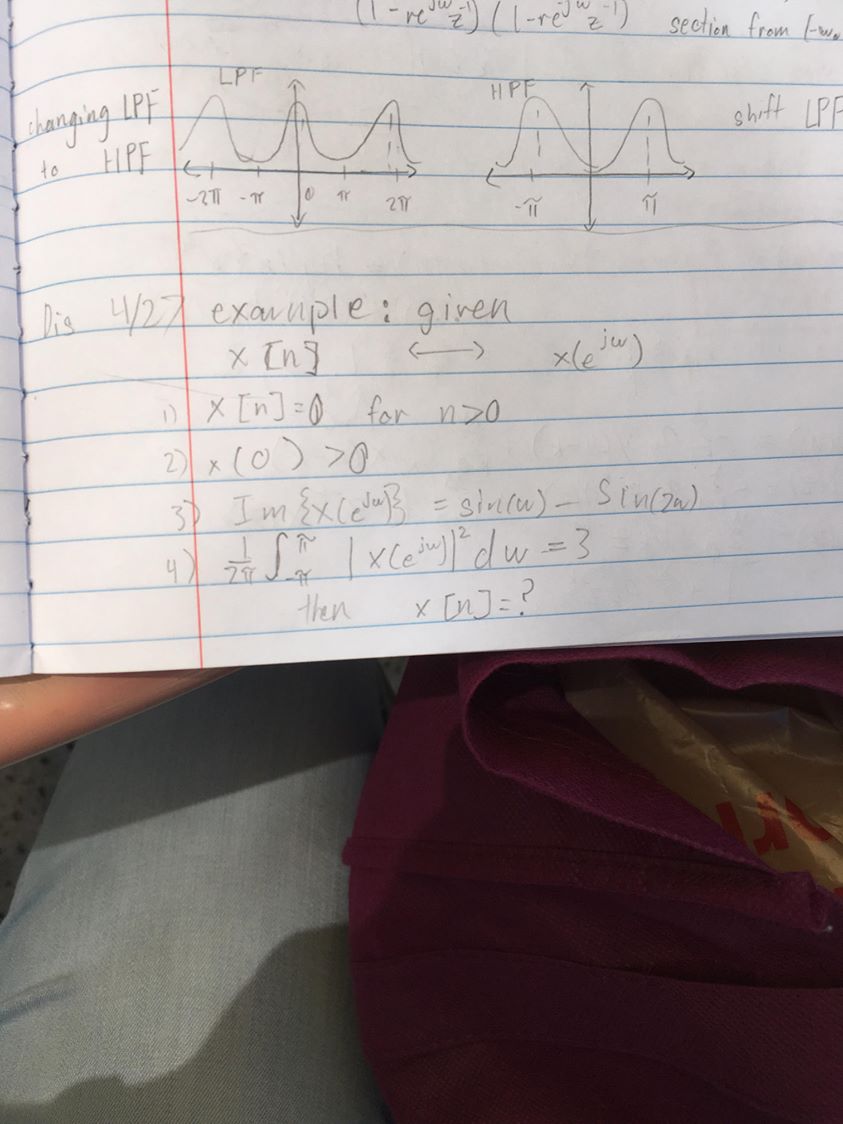 (1-re^jw z^-1)(1-re^jw z^-1) section from [-w₀
LPF HPF
changing LPF shift LPF
to HPF
-2π -π 0 π 2π -π π
Dis 4/27 example: given
x[n] ⟷ x(e^jw)
1) x[n]=0 for n>0
2) x(0) >0
3) Im{x(e^jw)} = sin(w) - sin(2w)
4) 1/2π ∫_-π^π |x(e^jw)|² dw = 3
then x[n]=?